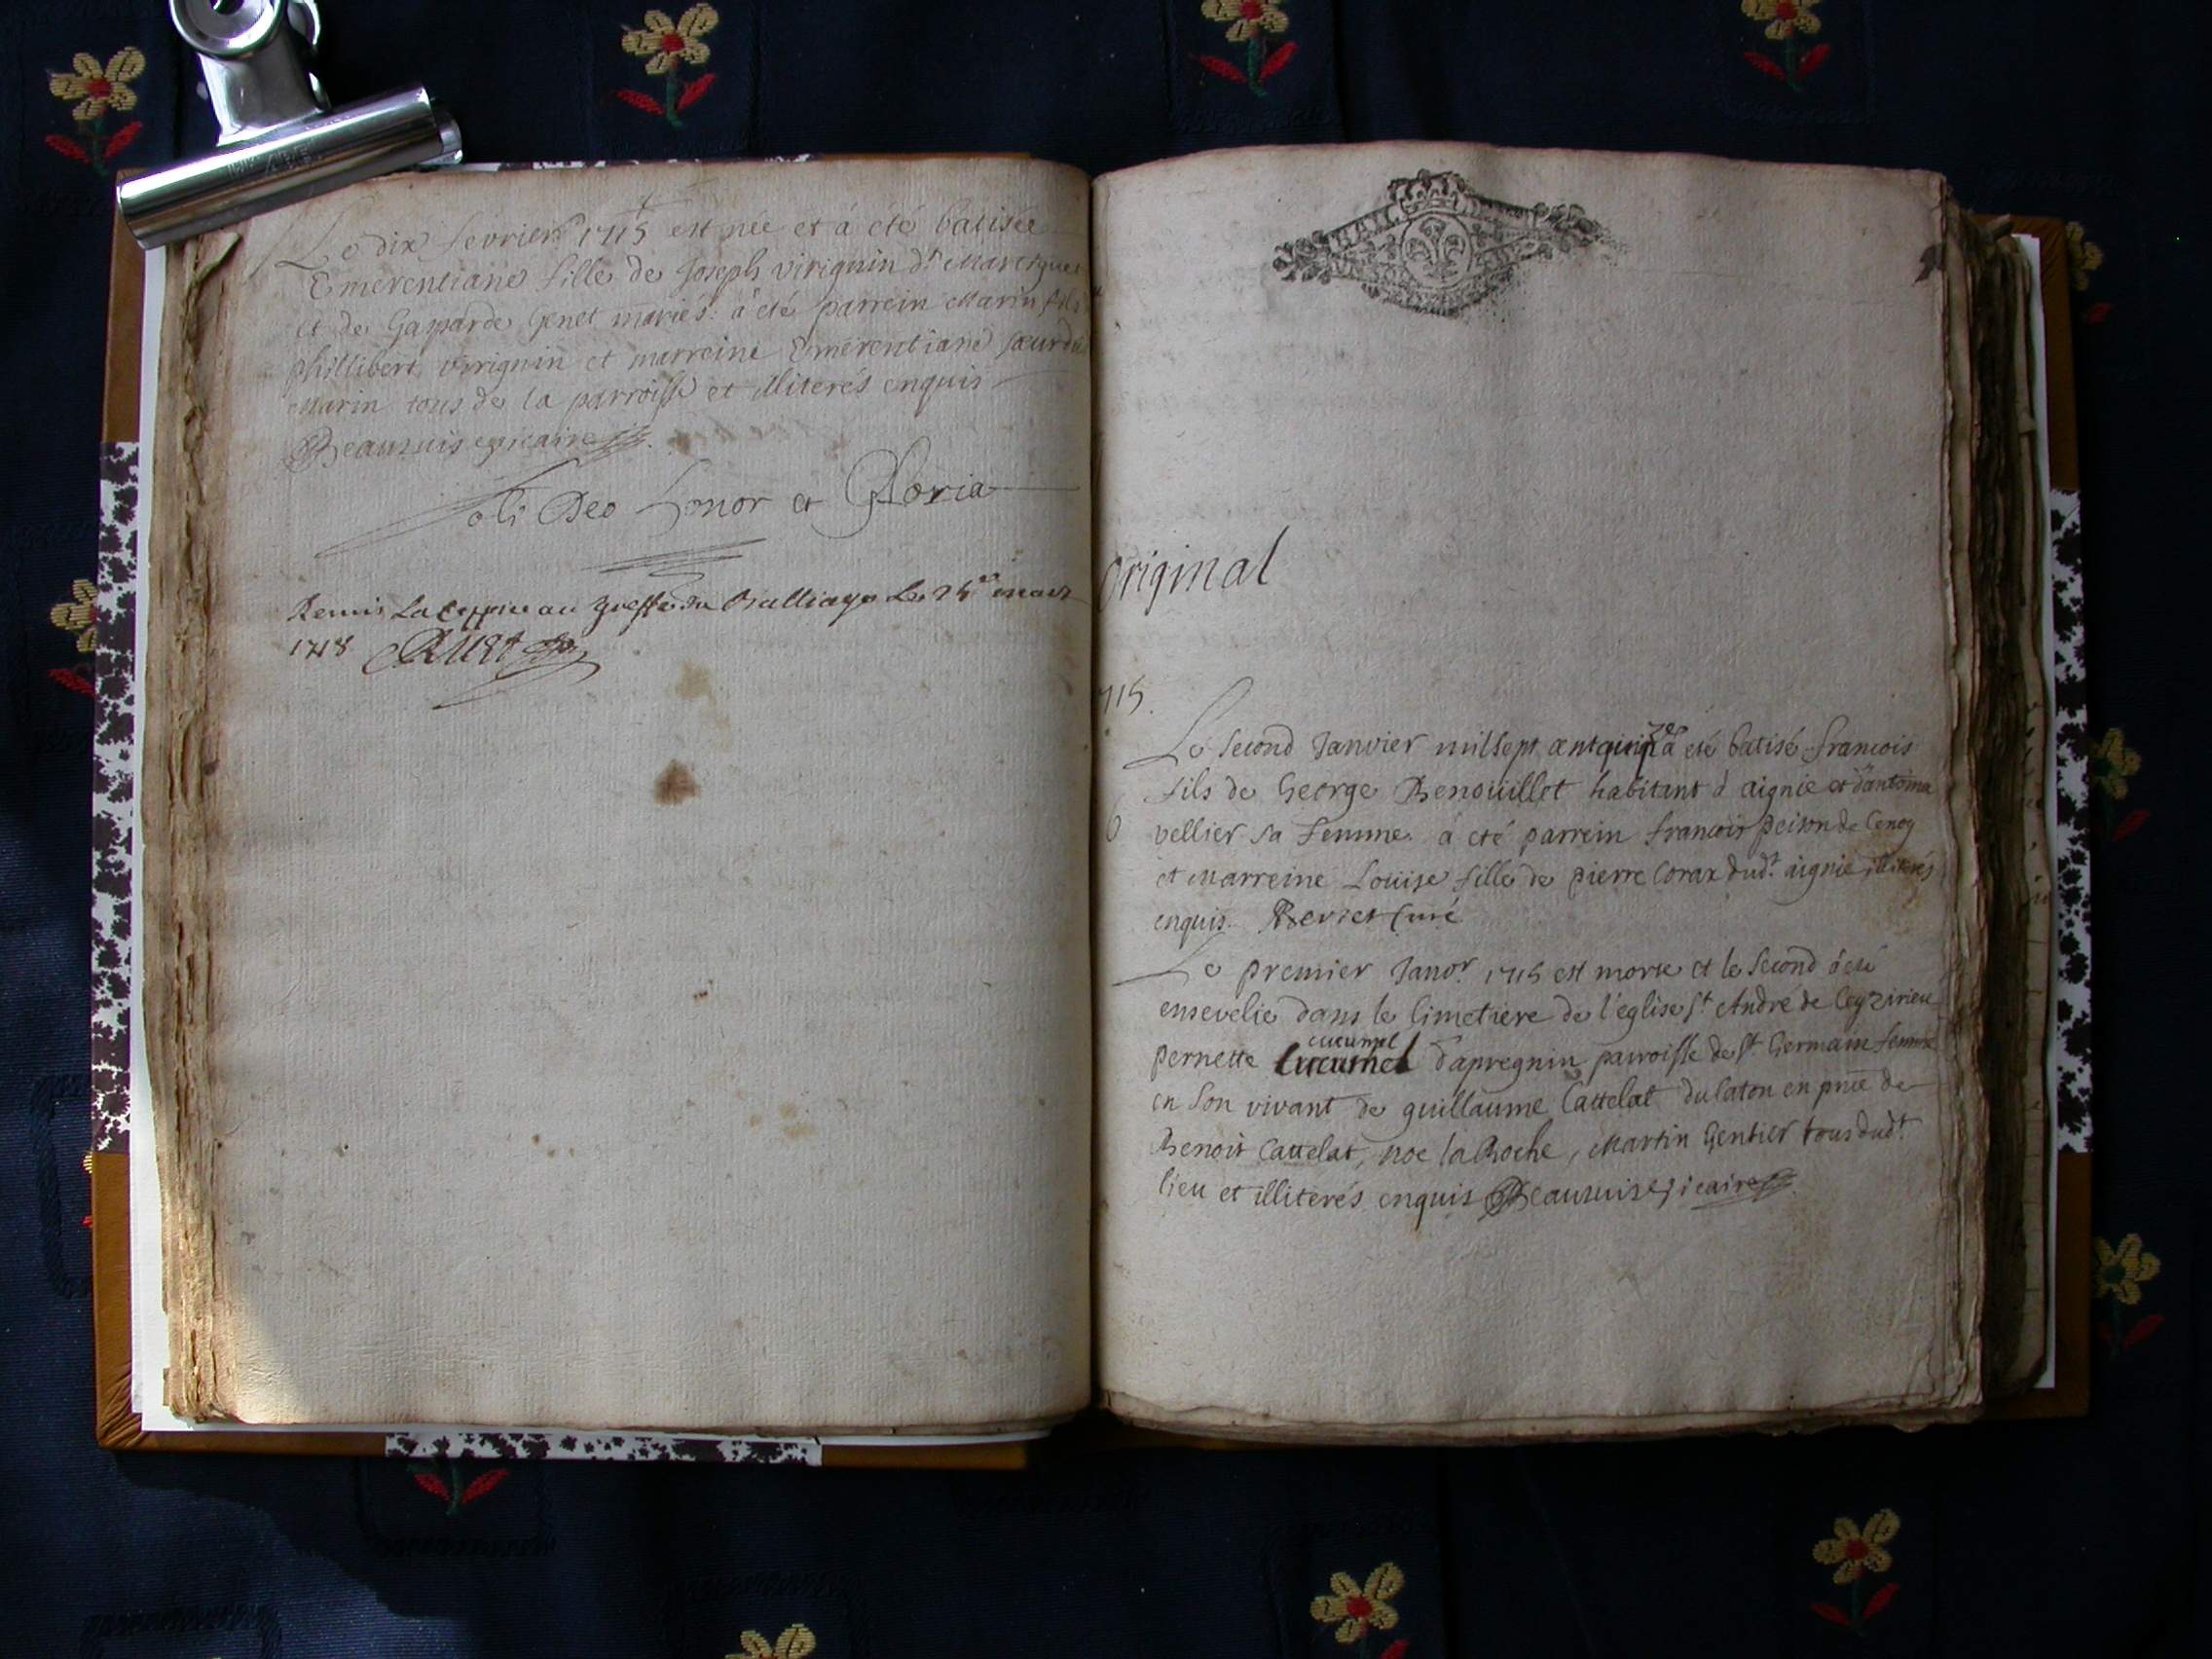 Le dix fevrier 1715 est née et á été batisée
Emerentiane fille de Joseph virignin dt
et de Gasparde Genet mariés. á été parrein Marin fils
phillibert virignin et marreine Emerentiane sœur du
Marin tous de la parroisse et illiterés enquis
Beauzuis vicaire
Soli Deo honor et Gloria
Remis La coppie au greffe du Balliage Le mars
1718
Original
715.
Le second Janvier mil sept cent quinze á eté batisé francois
fils de George Benouillet habitant d aignie et d'antoina
6 vellier sa femme. á eté parrein francois peison de Cenoy
et Marreine Louise fille de pierre Corax dudt aignie illiterés
enquis. curé
Le premier Janvr. 1715 est morte et le second á eté
ensevelie dans le Cimetiere de l'eglise st André de Ceyzirieu
cucumel
pernette Cucumel d'apregnin parroisse de st Germain femme
en son vivant de guillaume Cattelat du laton en pnce de
Benoit Cattelat, noe la Roche, Martin Gentier tous dudt
lieu et illiterés enquis Beauzuis vicaire